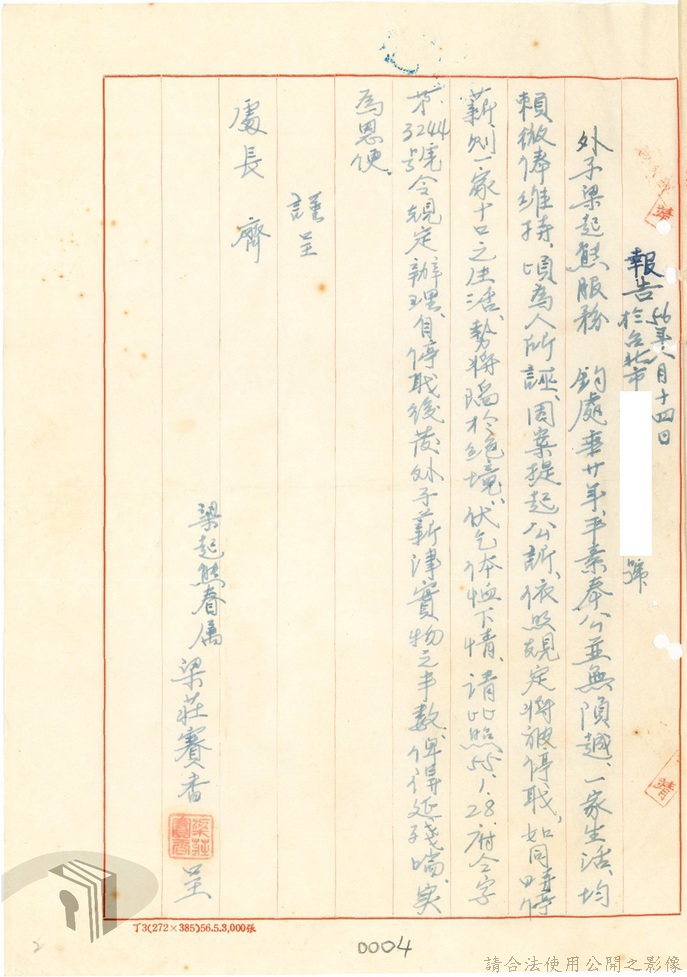 報告 56年八月十四日
於台北市
號
外子梁起熊服務　鈞處垂廿年、平素奉公並無隕越、一家生活、均
賴微俸維持、頃為人所誣、因案提起公訴、依照規定將被停職、如同時停
薪、則一家十口之生活、勢將陷於絕境、伏乞体恤下情、請比照55.1.28.府令字
第3244號令規定辦理、自停職後發外子薪津實物之半數、俾得延殘喘、実
為恩便。
謹呈
處長　齊
梁起熊眷属　梁莊賽香　呈
梁莊賽香
丁3(272×385)56.5.3,000張
0004
2
請合法使用公開之影像